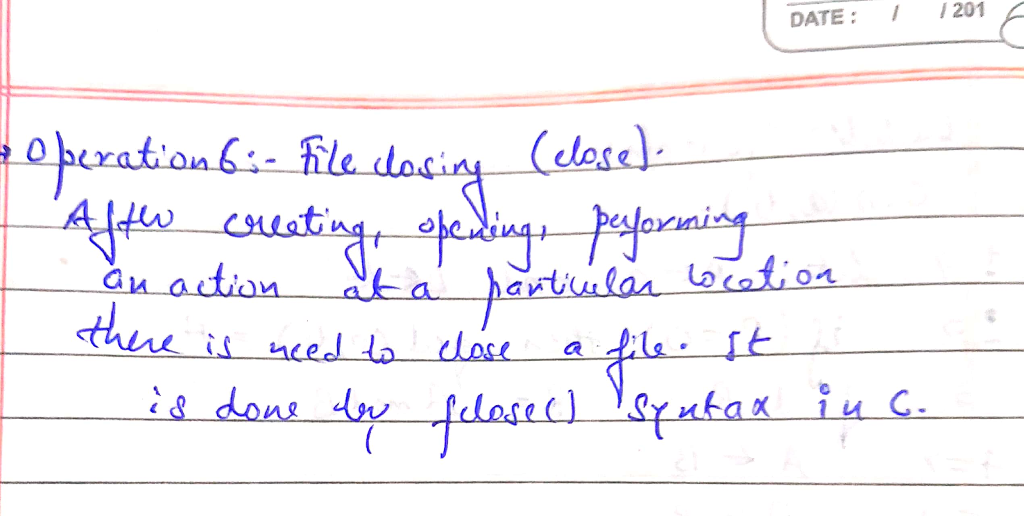 DATE : / / 201
Operation 6:- File closing (close).
After creating, opening, performing
an action at a particular location
there is need to close a file. It
is done by fclose() syntax in C.